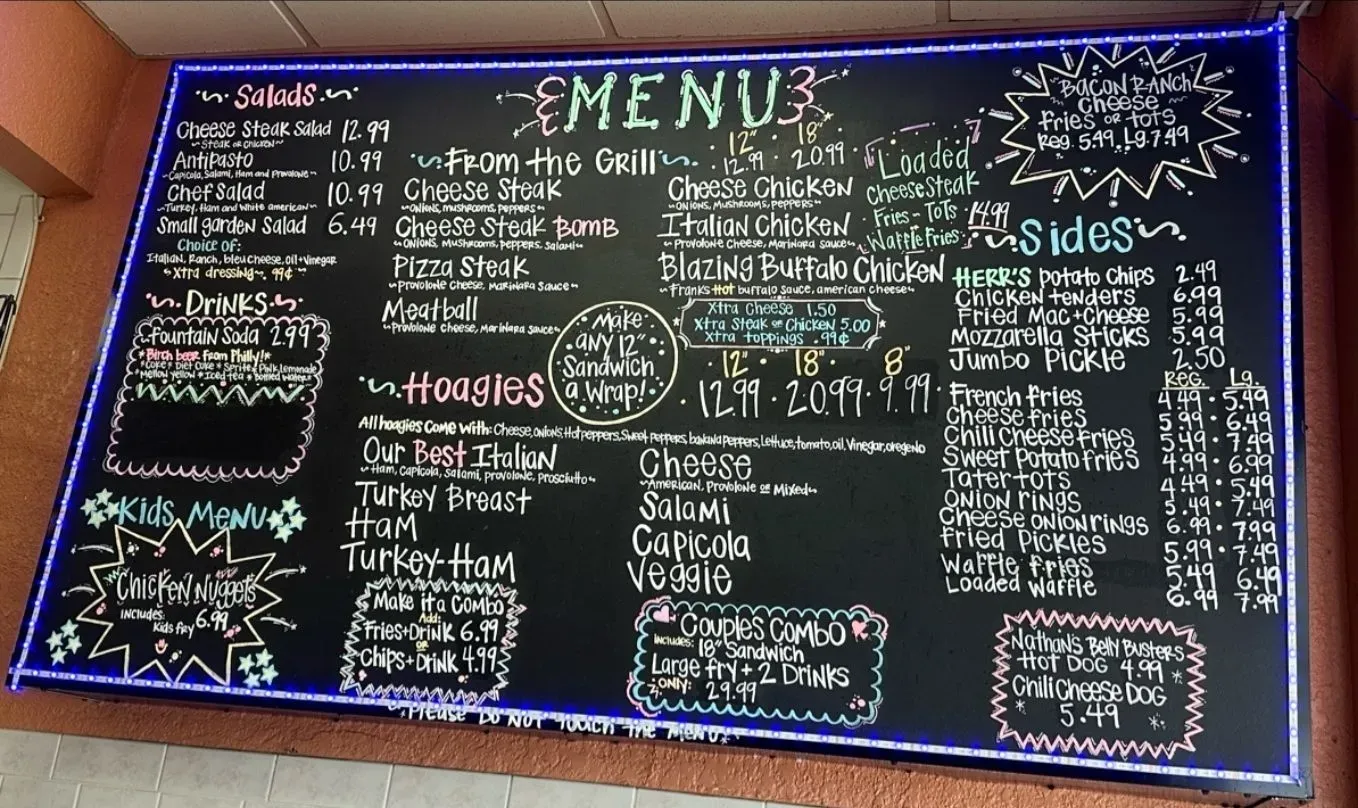 Salads
Cheese Steak Salad 12.99
~Steak or Chicken~
Antipasto 10.99
~Capicola, Salami, Ham and Provolone~
Chef Salad 10.99
~Turkey, Ham and White american~
Small garden Salad 6.49
Choice of:
Italian, Ranch, bleu Cheese, oil+Vinegar
~Xtra dressing~ .99¢~
Drinks
Fountain Soda 2.99
*Birch beer From Philly!*
*Coke* Diet Coke* Sprite* Pink Lemonade
*Mellow yellow* Iced tea* Bottled Water*
Kids Menu
Chicken Nuggets
Includes: 6.99
Kids fry
MENU
From the Grill
12" 18"
12.99 · 20.99
Cheese Steak
~Onions, Mushrooms, Peppers~
Cheese Steak Bomb
~Onions, Mushrooms, Peppers, Salami~
Pizza Steak
~Provolone Cheese, Marinara Sauce~
Meatball
~Provolone Cheese, Marinara Sauce~
Cheese Chicken
~Onions, Mushrooms, Peppers~
Italian Chicken
~Provolone Cheese, Marinara Sauce~
Blazing Buffalo Chicken
~Franks Hot buffalo Sauce, american Cheese~
Xtra Cheese 1.50
Xtra Steak or Chicken 5.00
Xtra toppings .99¢
Make
any 12"
Sandwich
a Wrap!
Hoagies
12" 18" 8"
12.99 · 20.99 · 9.99
All hoagies Come With: Cheese, onions, Hot peppers, Sweet peppers, banana peppers, Lettuce, tomato, oil, Vinegar, oregeno
Our Best Italian
~Ham, Capicola, Salami, provolone, Prosciutto~
Turkey Breast
Ham
Turkey-Ham
Cheese
~American, Provolone or Mixed~
Salami
Capicola
Veggie
Make it a Combo
Add:
Fries+Drink 6.99
or
Chips+Drink 4.99
Couples Combo
Includes: 18" Sandwich
Large fry + 2 Drinks
Only: 29.99
*Please Do NOT Touch the Menu*
Loaded
Cheese Steak
Fries - Tots 14.99
Waffle Fries
Bacon Ranch
Cheese
fries or tots
Reg. 5.99 Lg. 7.49
Sides
HERR'S Potato Chips 2.49
Chicken tenders 6.99
Fried Mac+Cheese 5.99
Mozzarella Sticks 5.99
Jumbo Pickle 2.50
Reg. Lg.
French fries 4.49 · 5.49
Cheese fries 5.99 · 6.49
Chili Cheese fries 5.49 · 7.49
Sweet Potato fries 4.99 · 6.99
Tater tots 4.49 · 5.49
Onion rings 5.49 · 7.49
Cheese onion rings 6.99 · 7.99
fried Pickles 5.99 · 7.49
Waffle fries 5.49 6.49
Loaded Waffle 6.99 7.99
Nathan's Belly Busters
Hot Dog 4.99
Chili Cheese Dog
5.49